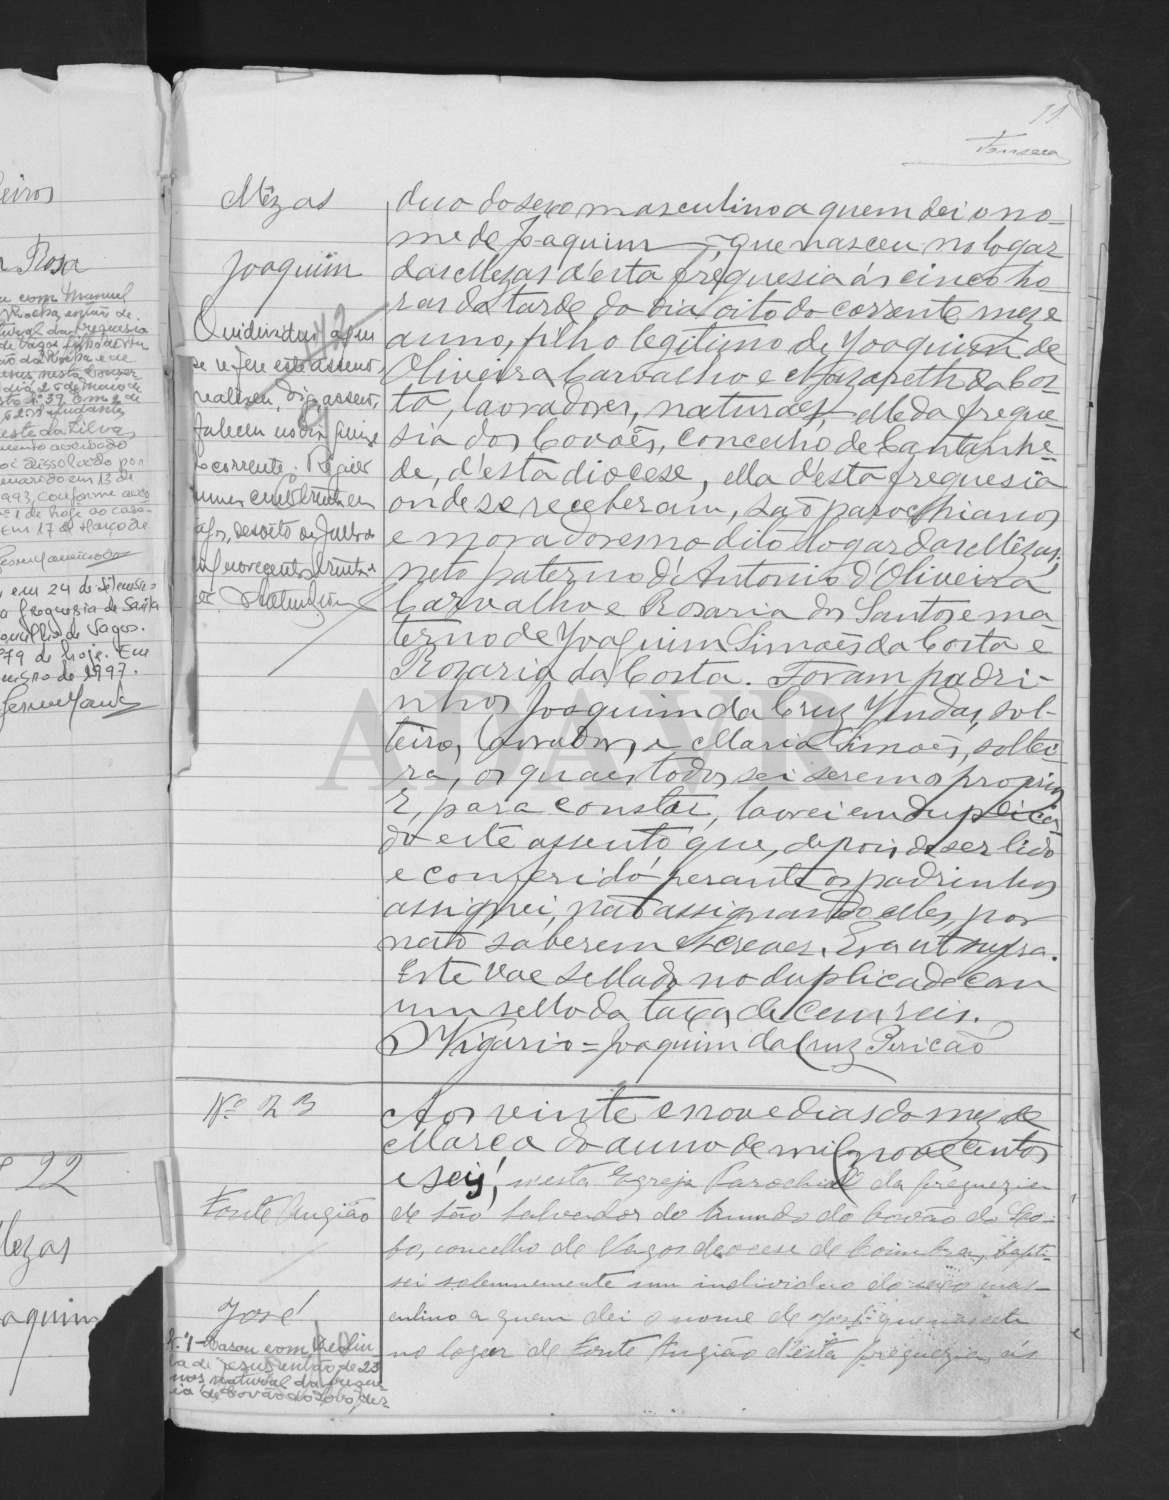 11
Fonseca
Mêzas
Joaquim
duo do sexo masculino a quem dei o no-
me de Joaquim, que nasceu no logar
das Mezas d'esta freguesia ás cinco ho
ras da tarde do dia oito do corrente mez e
anno, filho legitimo de Joaquim de
Oliveira Carvalho e Nazareth da Cos
ta, lavradores, naturaes, elle da fregue-
sia dos Covões, concelho de Cantanhe-
de, d'esta diocese, ella d'esta freguesia
onde se receberam, são parochianos
e moradores no dito logar das Mêzas;
neto paterno d'Antonio d'Oliveira
Carvalho e Rosaria dos Santos e ma-
terno de Joaquim Simões da Costa e
Rozaria da Costa. Foram padri-
nhos Joaquim da Cruz solt-
teiro, lavrador, e Maria Simões, soltei-
ra, os quaes todos sei serem os proprios
E, para constar, lavrei em duplica
do este assento que, depois de ser lido
e conferido perante os padrinhos
assignei, não assignando elles, por
não saberem escrever. Era ut supra.
Este vae sellado no duplicado com
um sello da taxa de cem reis.
O Vigario = Joaquim da Cruz Pericão
O individuo a que
se refere este assento
faleceu no dia quinze
do corrente. Registo
numero cento trinta e
dezoito de Julho de
mil novecentos trinta e
Nº 23
Fonte Angião
José
Aos vinte e nove dias do mez de
Março do anno de mil novecentos
e seis, nesta Egreja Parochial da freguezia
de São Salvador do Mundo do Covão do Lo-
bo, concelho de Vagos diocese de Coimbra, bapti-
sei solemnemente um individuo do sexo mas-
culino a quem dei o nome de José que nasceu
no logar de Fonte Angião d'esta freguezia ás
Nº 1 - Casou com
de 23
anos natural da fregue-
sia de Covão do Lobo, des-
eiros
Rosa
com Manuel
natural da freguesia
de Vagos
dia 25 de maio de
este da Silva
oi dissolvido por
em 13 de
1993, conforme
nº 1 de hoje ao casa-
Em 17 de Março de
em 24 de
a freguezia de Santa
de Vagos.
79 de hoje. Em
de 1997.
22
Mezas
oaquim
ADAVR